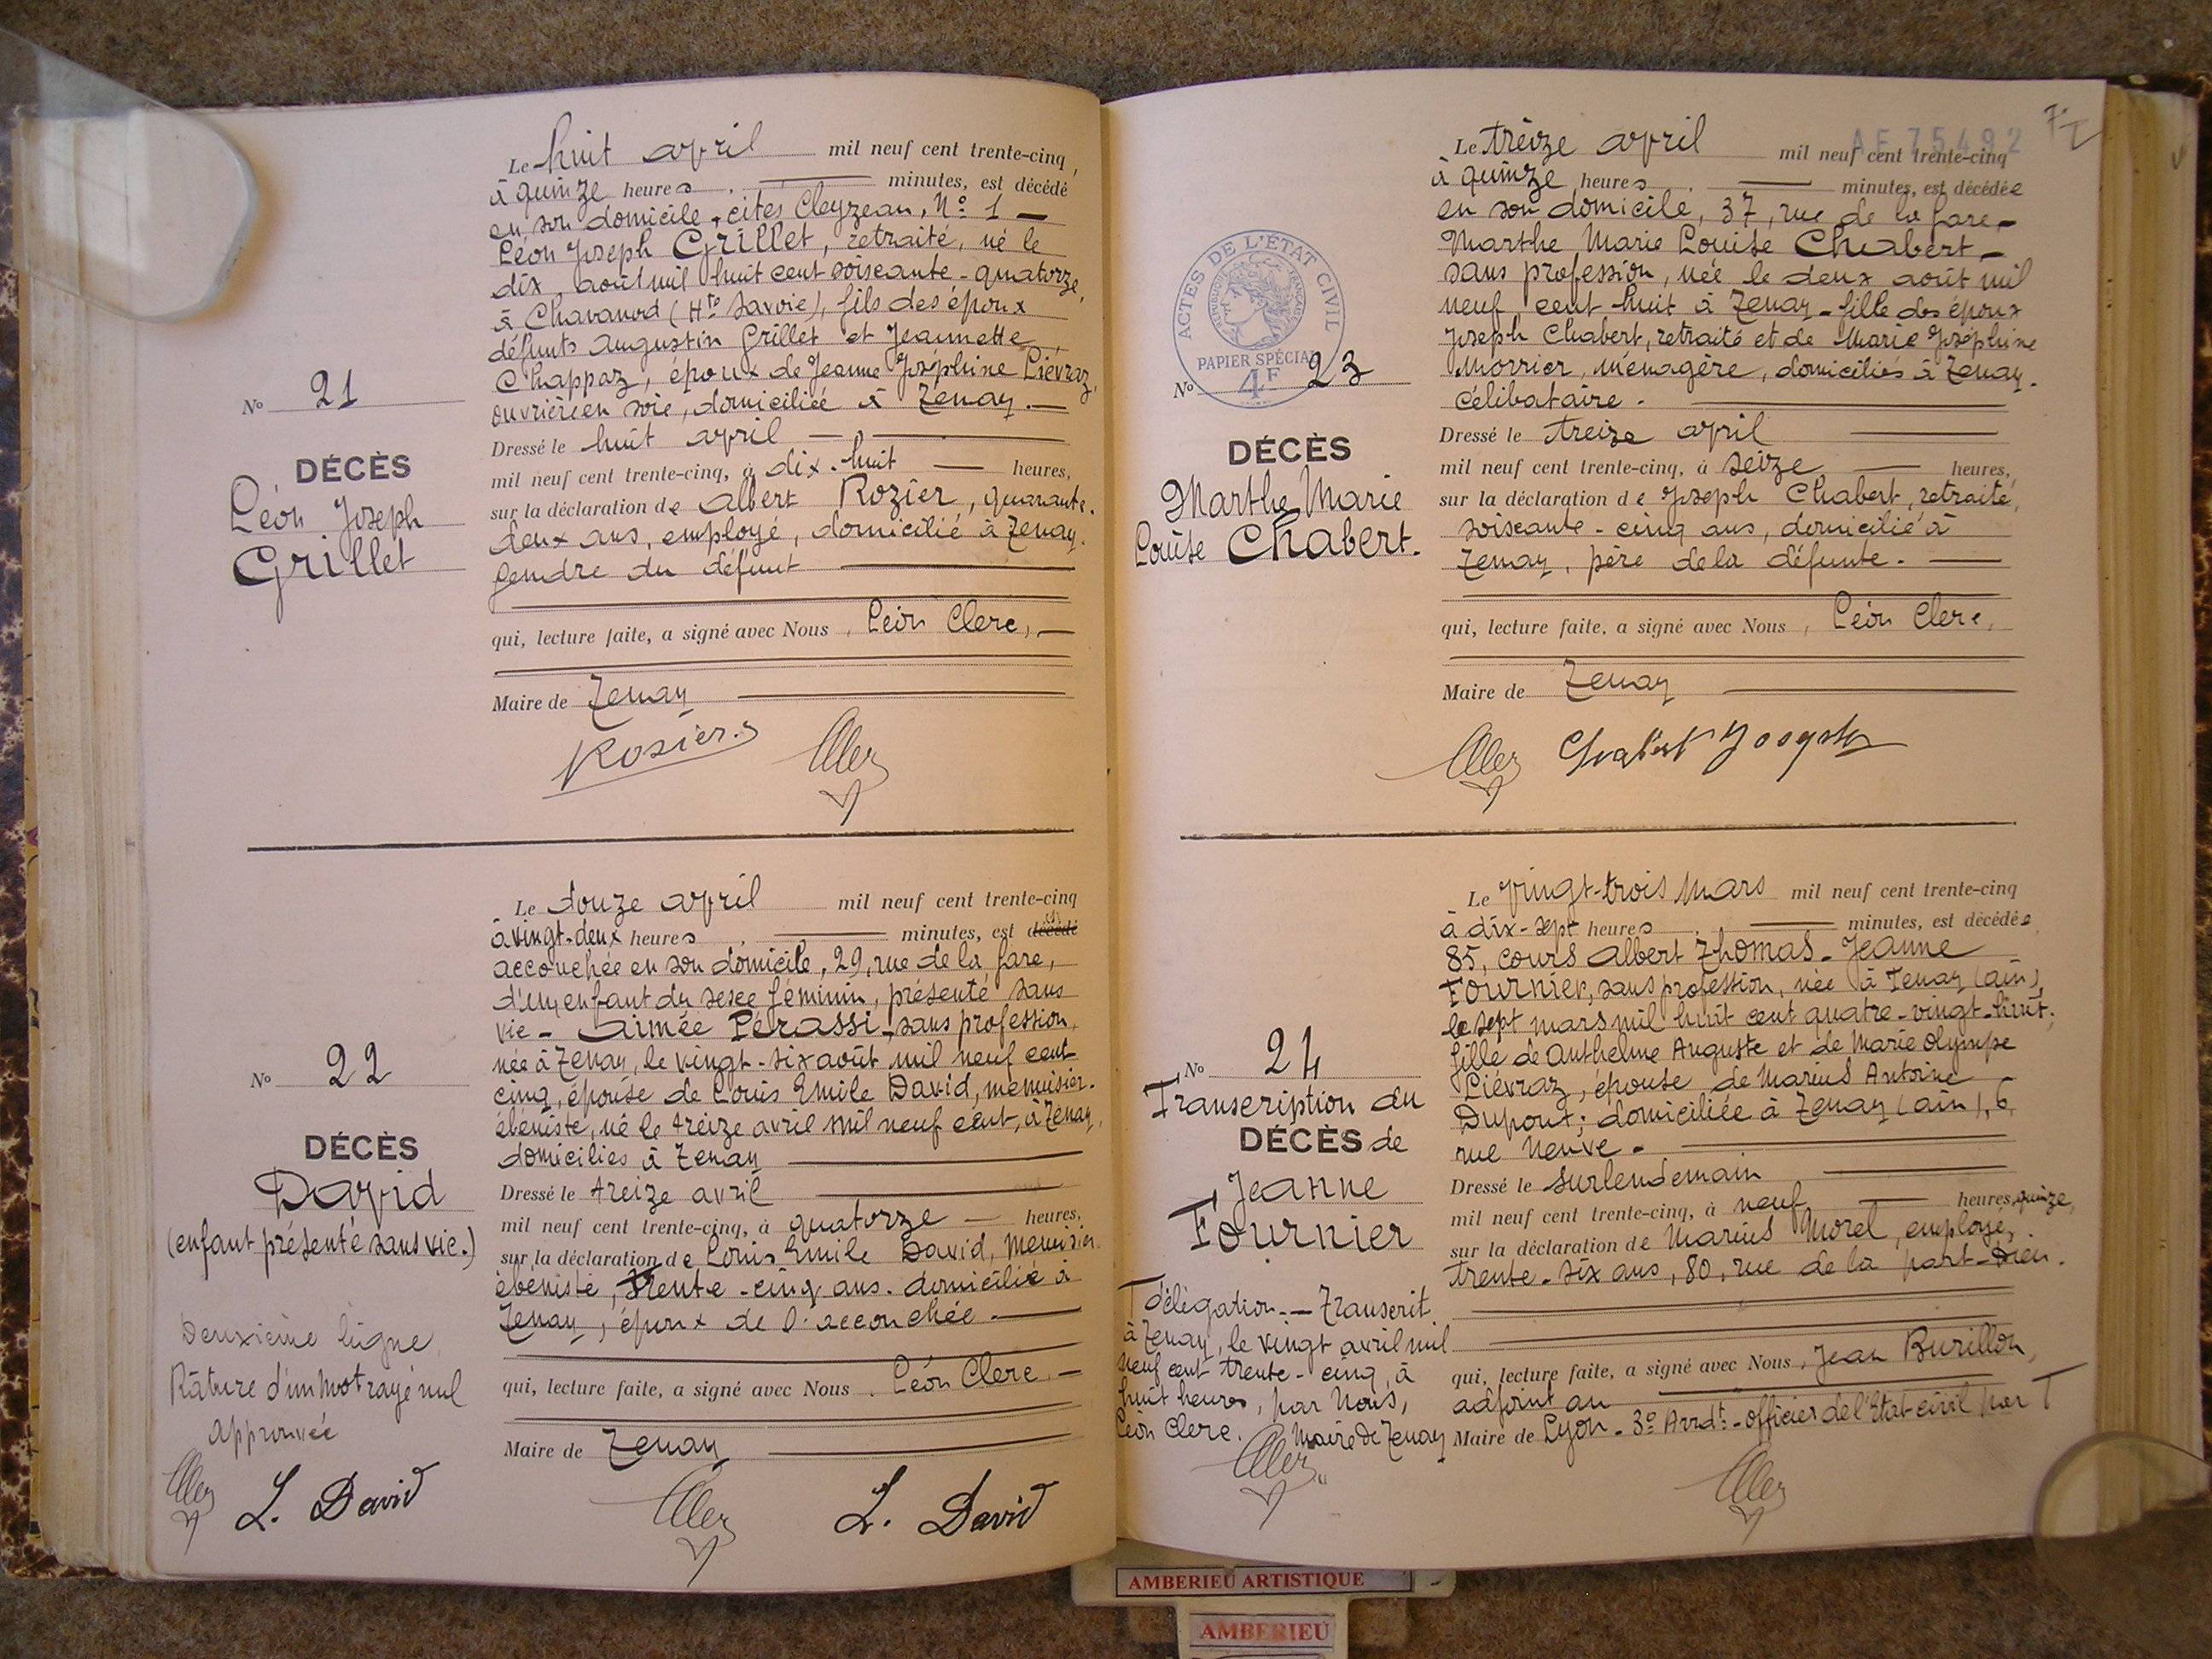 Le huit avril mil neuf cent trente-cinq
à quinze heures minutes, est décédé
en son domicile, cités Cleyzeau, N° 1 —
Léon Joseph Grillet, retraité, né le
dix août mil huit cent soixante-quatorze,
à Chavanod (Hte Savoie), fils des époux
défunts Augustin Grillet et Jeannette
Chappaz, époux de Jeanne Joséphine Liévraz,
ouvrière en soie, domiciliée à Tenay. —
Dressé le huit avril —
mil neuf cent trente-cinq, à dix-huit — heures,
sur la déclaration de Albert Rozier, quarante-
deux ans, employé, domicilié à Tenay.
gendre du défunt
qui, lecture faite, a signé avec Nous, Léon Clerc, —
Maire de Tenay
Rosier
N° 21
DÉCÈS
Léon Joseph
Grillet
Le douze avril mil neuf cent trente-cinq
à vingt-deux heures minutes, est décédé
accouchée en son domicile, 29, rue de la gare,
d'un enfant du sexe féminin, présenté sans
vie - Aimée Pérassi, sans profession,
née à Tenay, le vingt-six août mil neuf cent
cinq, épouse de Louis Emile David, menuisier-
ébéniste, né le treize avril mil neuf cent, à Tenay,
domiciliés à Tenay
Dressé le treize avril
mil neuf cent trente-cinq, à quatorze — heures,
sur la déclaration de Louis Emile David, menuisier
ébéniste, trente-cinq ans. domicilié à
Tenay, époux de l'accouchée. —
qui, lecture faite, a signé avec Nous, Léon Clerc —
Maire de Tenay
L. David
N° 22
DÉCÈS
David
(enfant présenté sans vie.)
Deuxième ligne
Râture d'un mot rayé nul
Approuvée
L. David
AE 75492
Le treize avril mil neuf cent trente-cinq
à quinze heures minutes, est décédée
en son domicile, 37, rue de la gare, —
Marthe Marie Louise Chabert, —
sans profession, née le deux août mil
neuf cent huit à Tenay - fille des époux
Joseph Chabert, retraité et de Marie Joséphine
Morrier, ménagère, domiciliés à Tenay.
Célibataire. —
Dressé le treize avril
mil neuf cent trente-cinq, à seize — heures,
sur la déclaration de Joseph Chabert, retraité,
soixante-cinq ans, domicilié à
Tenay, père de la défunte. —
qui, lecture faite, a signé avec Nous, Léon Clerc,
Maire de Tenay
Chabert Joseph
ACTES DE L'ÉTAT CIVIL
RÉPUBLIQUE FRANÇAISE
PAPIER SPÉCIAL
4F
N° 23
DÉCÈS
Marthe Marie
Louise Chabert.
Le vingt-trois Mars mil neuf cent trente-cinq
à dix-sept heures minutes, est décédée
85, cours Albert Thomas - Jeanne
Fournier, sans profession, née à Tenay (Ain),
le sept mars mil huit cent quatre-vingt-huit;
fille de Anthelme Auguste et de Marie Olympe
Liévraz, épouse de Marius Antoine
Dupont; domiciliée à Tenay (Ain), 6,
rue Neuve. —
Dressé le surlendemain
mil neuf cent trente-cinq, à neuf — heures, quinze,
sur la déclaration de Marius Morel, employé,
trente-six ans, 80, rue de la part-Dieu.
qui, lecture faite, a signé avec Nous, Jean Burillon,
adjoint au
Maire de Lyon - 3e Arrdt - officier de l'Etat-civil par T
N° 24
Transcription du
DÉCÈS de
Jeanne
Fournier
T délégation. — Transcrit
à Tenay, le vingt avril mil
neuf cent trente-cinq, à
huit heures, par Nous,
Léon Clerc. Maire de Tenay
AMBERIEU ARTISTIQUE
AMBERIEU